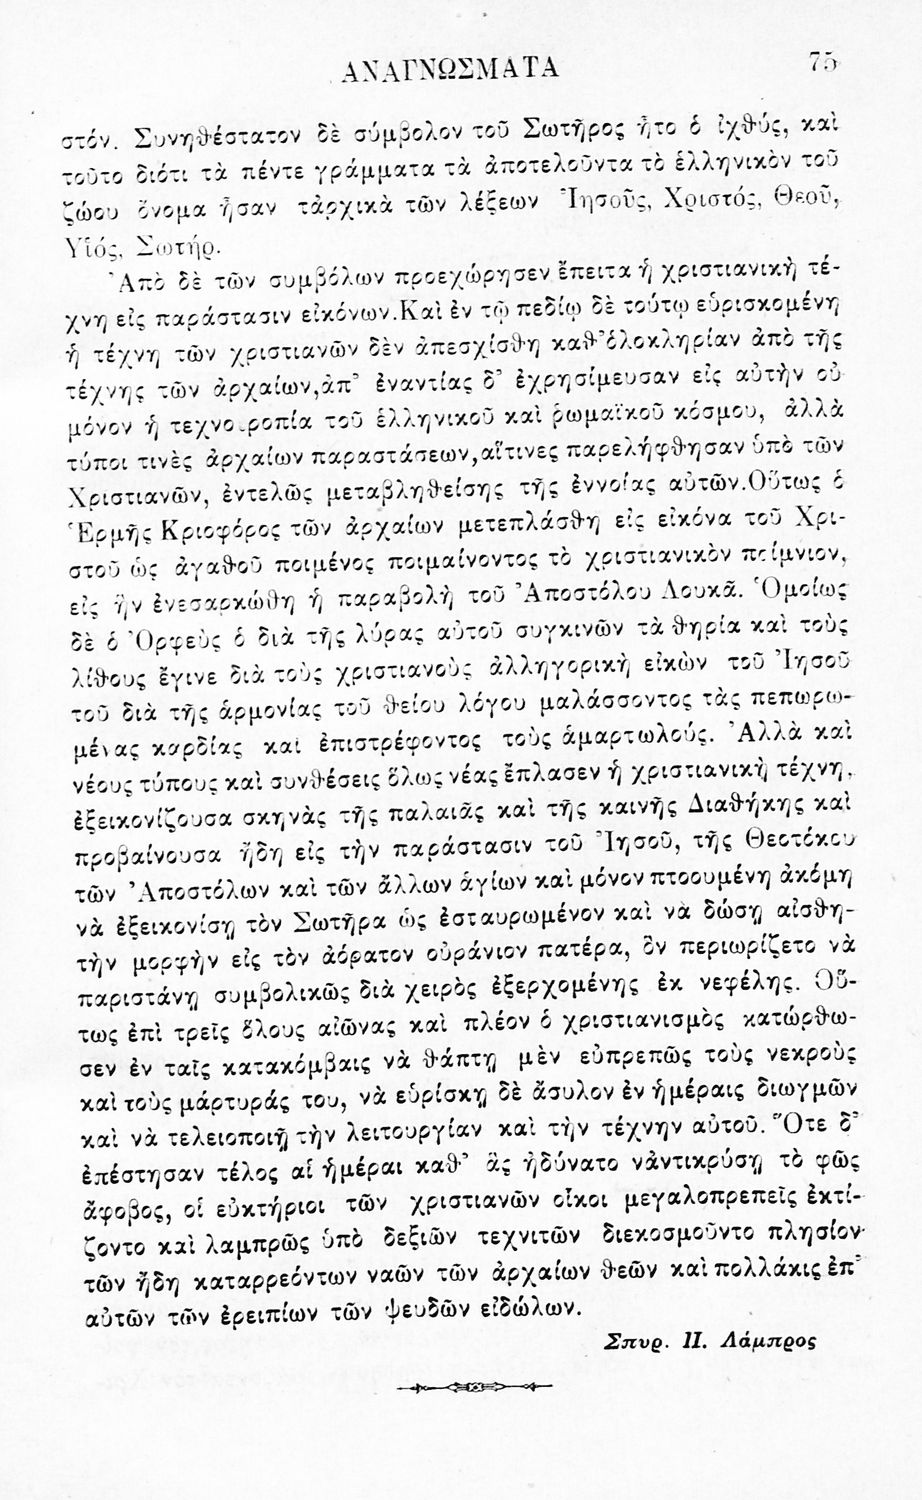 ΑΝΑΓΝΩΣΜΑΤΑ 75
στόν. Συνηθέστατον δὲ σύμβολον τοῦ Σωτῆρος ἦτο ὁ ἰχθύς, καὶ
τοῦτο διότι τὰ πέντε γράμματα τὰ ἀποτελοῦντα τὸ ἑλληνικὸν τοῦ
ζώου ὄνομα ἦσαν τἀρχικὰ τῶν λέξεων Ἰησοῦς, Χριστός, Θεοῦ,
Υἱός, Σωτήρ.
Ἀπὸ δὲ τῶν συμβόλων προεχώρησεν ἔπειτα ἡ χριστιανικὴ τέ-
χνη εἰς παράστασιν εἰκόνων.Καὶ ἐν τῷ πεδίῳ δὲ τούτῳ εὑρισκομένη
ἡ τέχνη τῶν χριστιανῶν δὲν ἀπεσχίσθη καθ’ὁλοκληρίαν ἀπὸ τῆς
τέχνης τῶν ἀρχαίων,ἀπ’ ἐναντίας δ’ ἐχρησίμευσαν εἰς αὐτὴν οὐ
μόνον ἡ τεχνοτροπία τοῦ ἑλληνικοῦ καὶ ῥωμαϊκοῦ κόσμου, ἀλλὰ
τύποι τινὲς ἀρχαίων παραστάσεων,αἵτινες παρελήφθησαν ὑπὸ τῶν
Χριστιανῶν, ἐντελῶς μεταβληθείσης τῆς ἐννοίας αὐτῶν.Οὕτως ὁ
Ἑρμῆς Κριοφόρος τῶν ἀρχαίων μετεπλάσθη εἰς εἰκόνα τοῦ Χρι-
στοῦ ὡς ἀγαθοῦ ποιμένος ποιμαίνοντος τὸ χριστιανικὸν ποίμνιον,
εἰς ἣν ἐνεσαρκώθη ἡ παραβολὴ τοῦ Ἀποστόλου Λουκᾶ. Ὁμοίως
δὲ ὁ Ὀρφεὺς ὁ διὰ τῆς λύρας αὐτοῦ συγκινῶν τὰ θηρία καὶ τοὺς
λίθους ἔγινε διὰ τοὺς χριστιανοὺς ἀλληγορικὴ εἰκὼν τοῦ Ἰησοῦ
τοῦ διὰ τῆς ἁρμονίας τοῦ θείου λόγου μαλάσσοντος τὰς πεπωρω-
μένας καρδίας καὶ ἐπιστρέφοντος τοὺς ἁμαρτωλούς. Ἀλλὰ καὶ
νέους τύπους καὶ συνθέσεις ὅλως νέας ἔπλασεν ἡ χριστιανικὴ τέχνη,
ἐξεικονίζουσα σκηνὰς τῆς παλαιᾶς καὶ τῆς καινῆς Διαθήκης καὶ
προβαίνουσα ἤδη εἰς τὴν παράστασιν τοῦ Ἰησοῦ, τῆς Θεοτόκου
τῶν Ἀποστόλων καὶ τῶν ἄλλων ἁγίων καὶ μόνον πτοουμένη ἀκόμη
νὰ ἐξεικονίσῃ τὸν Σωτῆρα ὡς ἐσταυρωμένον καὶ νὰ δώσῃ αἰσθη-
τὴν μορφὴν εἰς τὸν ἀόρατον οὐράνιον πατέρα, ὃν περιωρίζετο νὰ
παριστάνῃ συμβολικῶς διὰ χειρὸς ἐξερχομένης ἐκ νεφέλης. Οὕ-
τως ἐπὶ τρεῖς ὅλους αἰῶνας καὶ πλέον ὁ χριστιανισμὸς κατώρθω-
σεν ἐν ταῖς κατακόμβαις νὰ θάπτῃ μὲν εὐπρεπῶς τοὺς νεκροὺς
καὶ τοὺς μάρτυράς του, νὰ εὑρίσκῃ δὲ ἄσυλον ἐν ἡμέραις διωγμῶν
καὶ νὰ τελειοποιῇ τὴν λειτουργίαν καὶ τὴν τέχνην αὐτοῦ. Ὅτε δ’
ἐπέστησαν τέλος αἱ ἡμέραι καθ’ ἃς ἠδύνατο νἀντικρύσῃ τὸ φῶς
ἄφοβος, οἱ εὐκτήριοι τῶν χριστιανῶν οἶκοι μεγαλοπρεπεῖς ἐκτί-
ζοντο καὶ λαμπρῶς ὑπὸ δεξιῶν τεχνιτῶν διεκοσμοῦντο πλησίον
τῶν ἤδη καταρρεόντων ναῶν τῶν ἀρχαίων θεῶν καὶ πολλάκις ἐπ’
αὐτῶν τῶν ἐρειπίων τῶν ψευδῶν εἰδώλων.
Σπυρ. Π. Λάμπρος